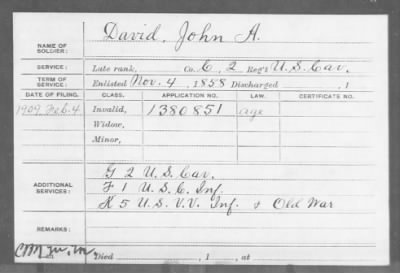 David, John A.
NAME OF SOLDIER:
SERVICE: Late rank, Co. C, 2 Reg't U.S. Cav.
TERM OF SERVICE: Enlisted Nov. 4, 1858 Discharged , 1
DATE OF FILING. CLASS. APPLICATION NO. LAW. CERTIFICATE NO.
1909, Feb. 4 Invalid, 1380851 age
Widow,
Minor,
ADDITIONAL SERVICES:
G 2 U.S. Cav.
F 1 U.S.C. Inf.
K 5 U.S.V.V. Inf. & Old War
REMARKS:
Died , 1 , at